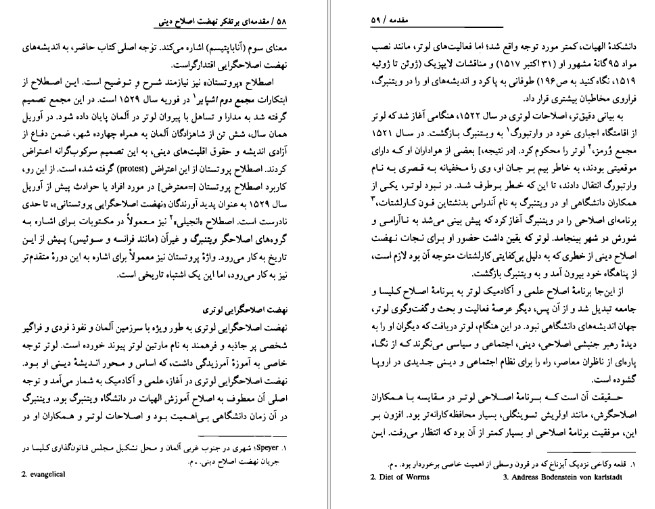 ۵۸ / مقدمه‌ای برتفکر نهضت اصلاح دینی
معنای سوم (آناباپتیسم) اشاره می‌کند. توجه اصلی کتاب حاضر، به اندیشه‌های
نهضت اصلاحگرایی اقتدارگراست.
اصطلاح «پروتستان» نیز نیازمند شرح و توضیح است. این اصطلاح از
ابتکارات مجمع دوم اشپایر۱ در فوریه سال ۱۵۲۹ است. در این مجمع تصمیم
گرفته شد به مدارا و تساهل با پیروان لوتر در آلمان پایان داده شود. در آوریل
همان سال، شش تن از شاهزادگان آلمان به همراه چهارده شهر، ضمن دفاع از
آزادی اندیشه و حقوق اقلیت‌های دینی، به این تصمیم سرکوب‌گرانه اعتراض
کردند. اصطلاح پروتستان از این اعتراض (protest) گرفته شده است. از این رو،
کاربرد اصطلاح پروتستان (=معترض) در مورد افراد یا حوادث پیش از آوریل
سال ۱۵۲۹ به عنوان پدید آورندگان «نهضت اصلاحگرایی پروتستانی»، تا حدی
نادرست است. اصطلاح «انجیلی»۲ نیز معمولاً در مکتوبات برای اشاره به
گروه‌های اصلاحگر ویتنبرگ و غیرآن (مانند فرانسه و سوئیس) پیش از این
تاریخ به کار می‌رود. واژهٔ پروتستان نیز معمولاً برای اشاره به این دورهٔ متقدم‌تر
نیز به کار می‌رود، اما این یک اشتباه تاریخی است.
نهضت اصلاحگرایی لوتری
نهضت اصلاحگرایی لوتری به طور ویژه با سرزمین آلمان و نفوذ فردی و فراگیر
شخصی پر جاذبه و فرهمند به نام مارتین لوتر پیوند خورده است. لوتر توجه
خاصی به آموزهٔ آمرزیدگی داشت، که اساس و محور اندیشهٔ دینی او بود.
نهضت اصلاحگرایی لوتری در آغاز، علمی و آکادمیک به شمار می‌آمد و توجه
اصلی آن معطوف به اصلاح آموزش الهیات در دانشگاه ویتنبرگ بود. ویتنبرگ
در آن زمان دانشگاهی بی‌اهمیت بود و اصلاحات لوتر و همکاران او در
۱. Speyer؛ شهری در جنوب غربی آلمان و محل تشکیل مجلس قانون‌گذاری کلیسا در
جریان نهضت اصلاح دینی. ـ م.
2. evangelical
مقدمه / ۵۹
دانشکدهٔ الهیات، کمتر مورد توجه واقع شد؛ اما فعالیت‌های لوتر، مانند نصب
مواد ۹۵گانهٔ مشهور او (۳۱ اکتبر ۱۵۱۷) و مناقشات لایپزیک (ژوئن تا ژوئیه
۱۵۱۹، نگاه کنید به ص۱۹۶) طوفانی به پا کرد و اندیشه‌های او را در ویتنبرگ،
فراروی مخاطبان بیشتری قرار داد.
به بیانی دقیق‌تر، اصلاحات لوتری در سال ۱۵۲۲، هنگامی آغاز شد که لوتر
از اقامتگاه اجباری خود در وارتبورگ۱ به ویتنبرگ بازگشت. در سال ۱۵۲۱
مجمع وُرمز،۲ لوتر را محکوم کرد. [در نتیجه،] بعضی از هواداران او که دارای
موقعیتی بودند، به خاطر بیم بر جان او، وی را مخفیانه به قصری به نام
وارتبورگ انتقال دادند، تا این که خطر برطرف شد. در نبود لوتر، یکی از
همکاران دانشگاهی او در ویتنبرگ به نام آندراس بدنشتاین فون کارلشتات،۳
برنامه‌ای اصلاحی را در ویتنبرگ آغاز کرد که پیش بینی می‌شد به ناآرامی و
شورش در شهر بینجامد. لوتر که یقین داشت حضور او برای نجات نهضت
اصلاح دینی از خطری که به دلیل بی‌کفایتی کارلشتات متوجه آن بود لازم است،
از پناهگاه خود بیرون آمد و به ویتنبرگ بازگشت.
از این‌جا برنامهٔ اصلاح علمی و آکادمیک لوتر به برنامهٔ اصلاح کلیسا و
جامعه تبدیل شد و از آن پس، دیگر عرصهٔ فعالیت و بحث و گفت‌وگوی لوتر،
جهان اندیشه‌های دانشگاهی نبود. در این هنگام، لوتر دریافت که دیگران او را به
دیدهٔ رهبر جنبشی اصلاحی، دینی، اجتماعی و سیاسی می‌نگرند که از نگاه
پاره‌ای از ناظران معاصر، راه را برای نظام اجتماعی و دینی جدیدی در اروپا
گشوده است.
حقیقت آن است که برنامهٔ اصلاحی لوتر در مقایسه با همکاران
اصلاحگرش، مانند اولریش تسوینگلی، بسیار محافظه‌کارانه‌تر بود. افزون بر
این، موفقیت برنامهٔ اصلاحی او بسیار کمتر از آن بود که انتظار می‌رفت. این
۱. قلعه وکاخی نزدیک آیزناخ که در قرون وسطی از اهمیت خاصی برخوردار بود. ـ م.
2. Diet of Worms 3. Andreas Bodenstein von karlstadt